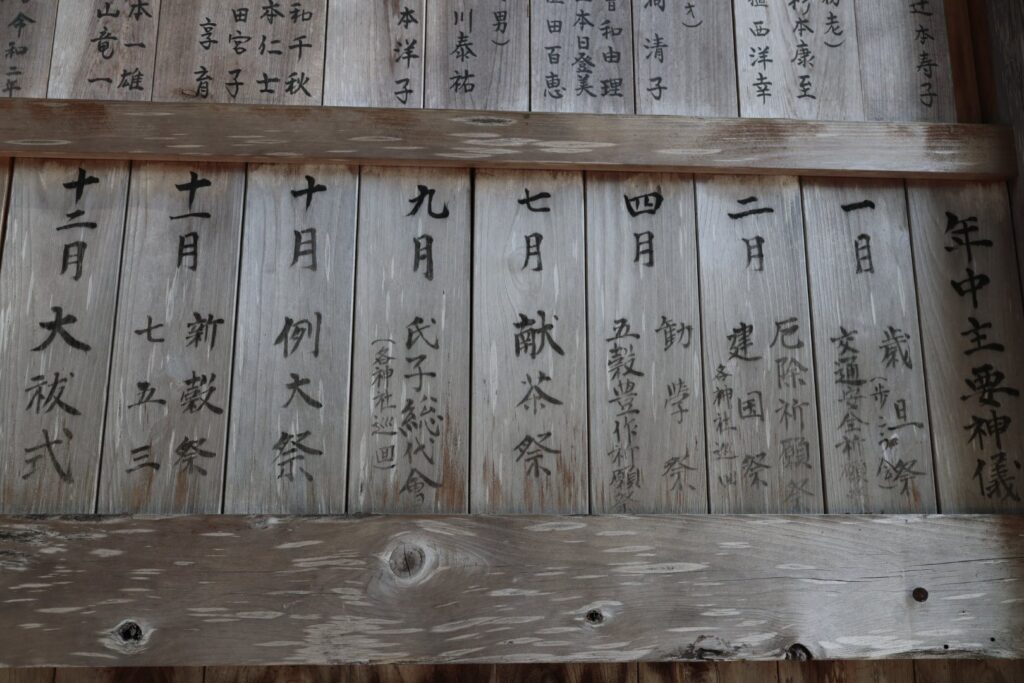 辻本寿子
杉本康至
植西洋幸
清子
曽和由理
山本日登美
窪田百恵
男)
川泰祐
本洋子
和千秋
本仁士
田宮子
享育
本一雄
山竜一
令和二年
年中主要神儀
一月
歳旦祭
交通安全祈願
二月
厄除祈願祭
建国祭
各神社巡回
四月
勧学祭
五穀豊作祈願祭
七月
献茶祭
九月
氏子総代會
(各神社巡回)
十月
例大祭
十一月
新穀祭
七五三
十二月
大祓式